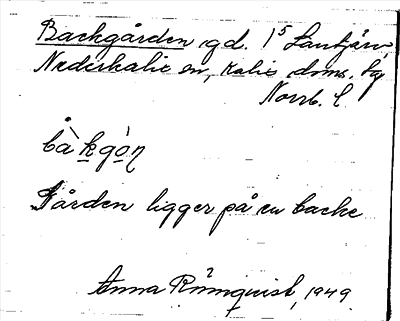 Backgården gd. 1⁵ Lantjärv,
Nederkalix sn, Kalix doms. fg
Norrb. l
bàkgò̀n
Gården ligger på en backe
Anna Rönnquist, 1949